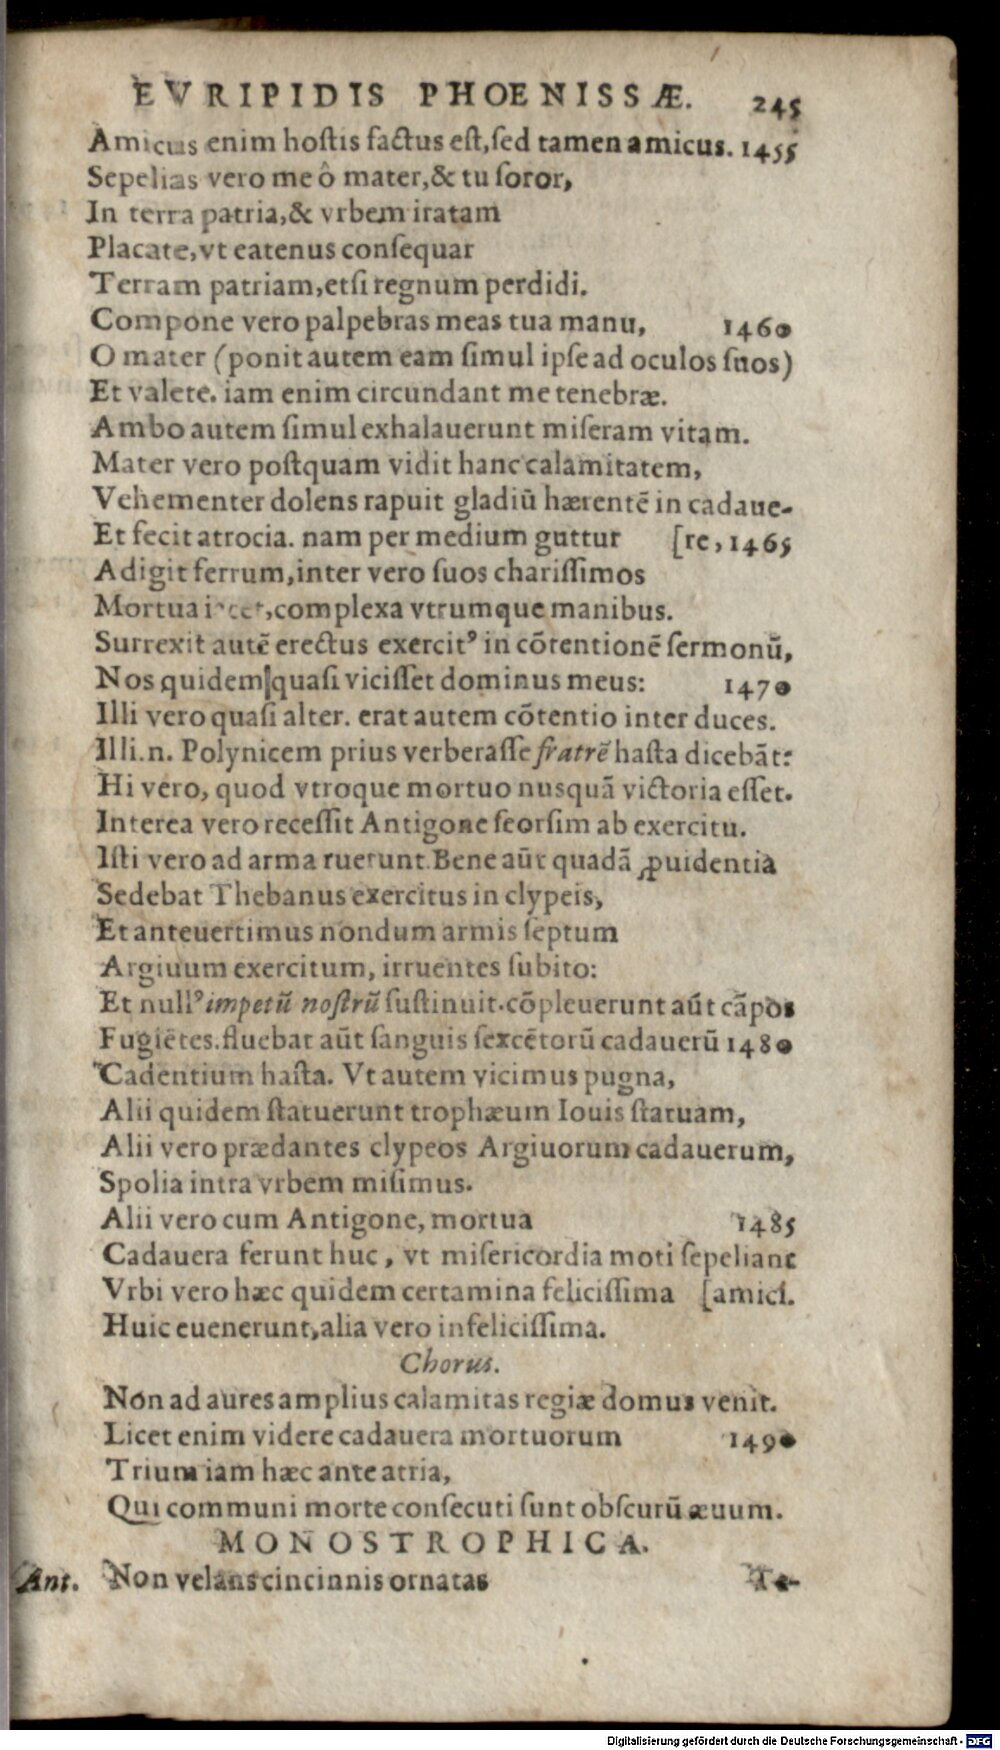 EVRIPIDIS PHOENISSÆ. 245
Amicus enim hoſtis factus eſt, ſed tamen amicus. 1455
Sepelias vero me ô mater, & tu ſoror,
In terra patria, & vrbem iratam
Placate, vt eatenus conſequar
Terram patriam, etſi regnum perdidi.
Compone vero palpebras meas tua manu, 1460
O mater (ponit autem eam ſimul ipſe ad oculos ſuos)
Et valete. iam enim circundant me tenebræ.
Ambo autem ſimul exhalauerunt miſeram vitam.
Mater vero poſtquam vidit hanc calamitatem,
Vehementer dolens rapuit gladiū hærentē in cadaue-
Et fecit atrocia. nam per medium guttur [re, 1465
Adigit ferrum, inter vero ſuos chariſſimos
Mortua iacet, complexa vtrumque manibus.
Surrexit autē erectus exercitꝰ in cōtentionē ſermonū,
Nos quidem quaſi viciſſet dominus meus: 1470
Illi vero quaſi alter. erat autem cōtentio inter duces.
Illi .n. Polynicem prius verberaſſe fratrē haſta dicebāt:
Hi vero, quod vtroque mortuo nusquā victoria eſſet.
Interea vero receſſit Antigone ſeorſim ab exercitu.
Iſti vero ad arma ruerunt. Bene aūt quadā ꝓuidentia
Sedebat Thebanus exercitus in clypeis,
Et anteuertimus nondum armis ſeptum
Argiuum exercitum, irruentes ſubito:
Et nullꝰ impetū noſtrū ſuſtinuit. cōpleuerunt aūt cāpos
Fugiētes. fluebat aūt ſanguis ſexcētorū cadauerū 1480
Cadentium haſta. Vt autem vicimus pugna,
Alii quidem ſtatuerunt trophæum Iouis ſtatuam,
Alii vero prædantes clypeos Argiuorum cadauerum,
Spolia intra vrbem miſimus.
Alii vero cum Antigone, mortua 1485
Cadauera ferunt huc, vt miſericordia moti ſepeliant
Vrbi vero hæc quidem certamina feliciſſima [amici.
Huic euenerunt, alia vero infeliciſſima.
Chorus.
Non ad aures amplius calamitas regiæ domus venit.
Licet enim videre cadauera mortuorum 1490
Trium iam hæc ante atria,
Qui communi morte conſecuti ſunt obſcurū æuum.
MONOSTROPHICA.
Ant. Non velans cincinnis ornatas Te-
Digitalisierung gefördert durch die Deutsche Forschungsgemeinschaft - DFG